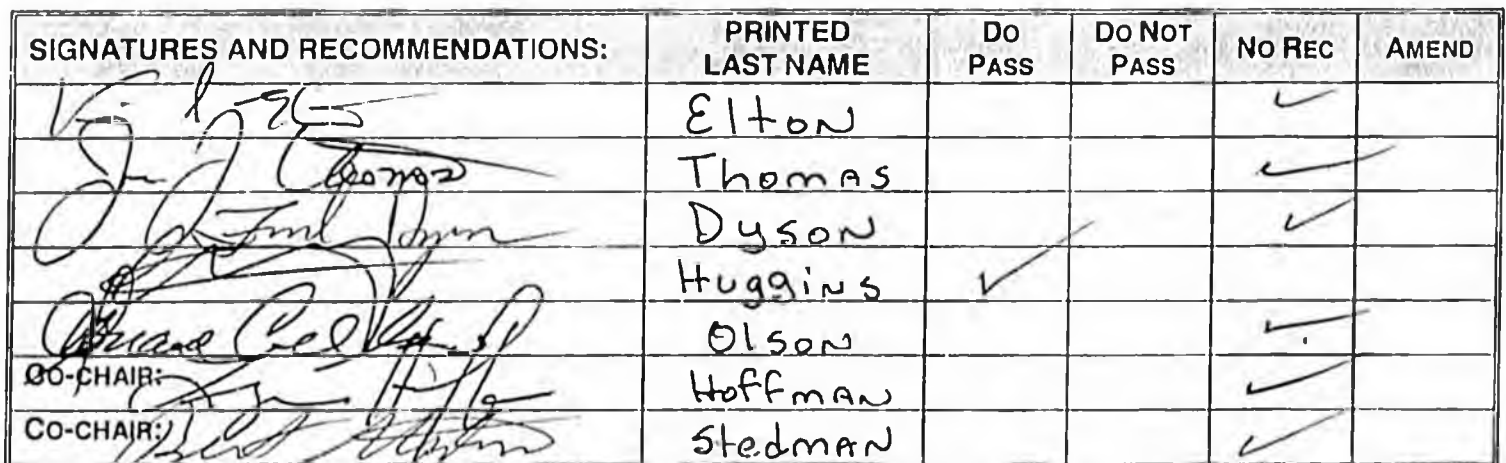 SIGNATURES AND RECOMMENDATIONS: PRINTED LAST NAME DO PASS DO NOT PASS NO REC AMEND
Elton ✓
Thomas ✓
Dyson ✓
Huggins ✓
Olson ✓
CO-CHAIR: Hoffman ✓
CO-CHAIR: Bert Stedman Stedman ✓